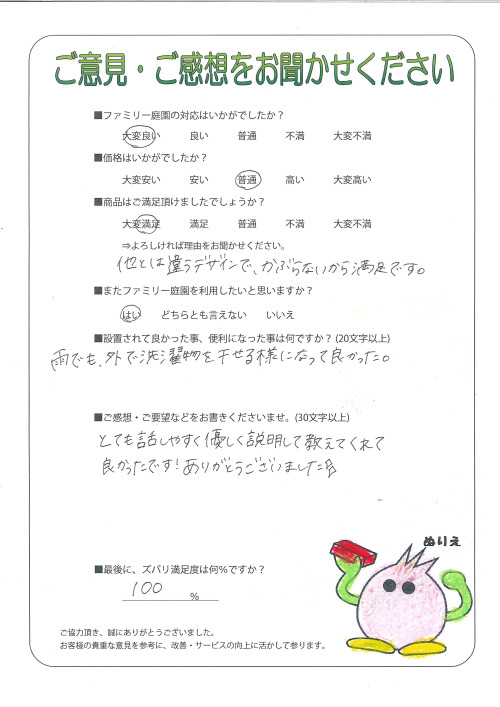 ご意見・ご感想をお聞かせください
■ファミリー庭園の対応はいかがでしたか？
大変良い 良い 普通 不満 大変不満
■価格はいかがでしたか？
大変安い 安い 普通 高い 大変高い
■商品はご満足頂けましたでしょうか？
大変満足 満足 普通 不満 大変不満
⇒よろしければ理由をお聞かせください。
他とは違うデザインで、かぶらないから満足です。
■またファミリー庭園を利用したいと思いますか？
はい どちらとも言えない いいえ
■設置されて良かった事、便利になった事は何ですか？(20文字以上)
雨でも、外で洗濯物を干せる様になって良かった。
■ご感想・ご要望などをお書きくださいませ。(30文字以上)
とても話しやすく優しく説明して教えてくれて
良かったです！ありがとうございました
ぬりえ
■最後に、ズバリ満足度は何％ですか？
100 %
ご協力頂き、誠にありがとうございました。
お客様の貴重な意見を参考に、改善・サービスの向上に活かして参ります。